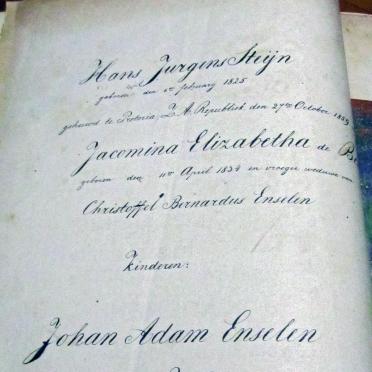 Hans Jurgens Steijn
geboren den february 1825
gehuwd te Pretoria Z. A. Republiek den 27sten October 1859
Jacomina Elizabetha de
geboren den April 1834 en vroeger weduwe van
Christoffel Bernardus Enselen
Kinderen:
Johan Adam Enselen